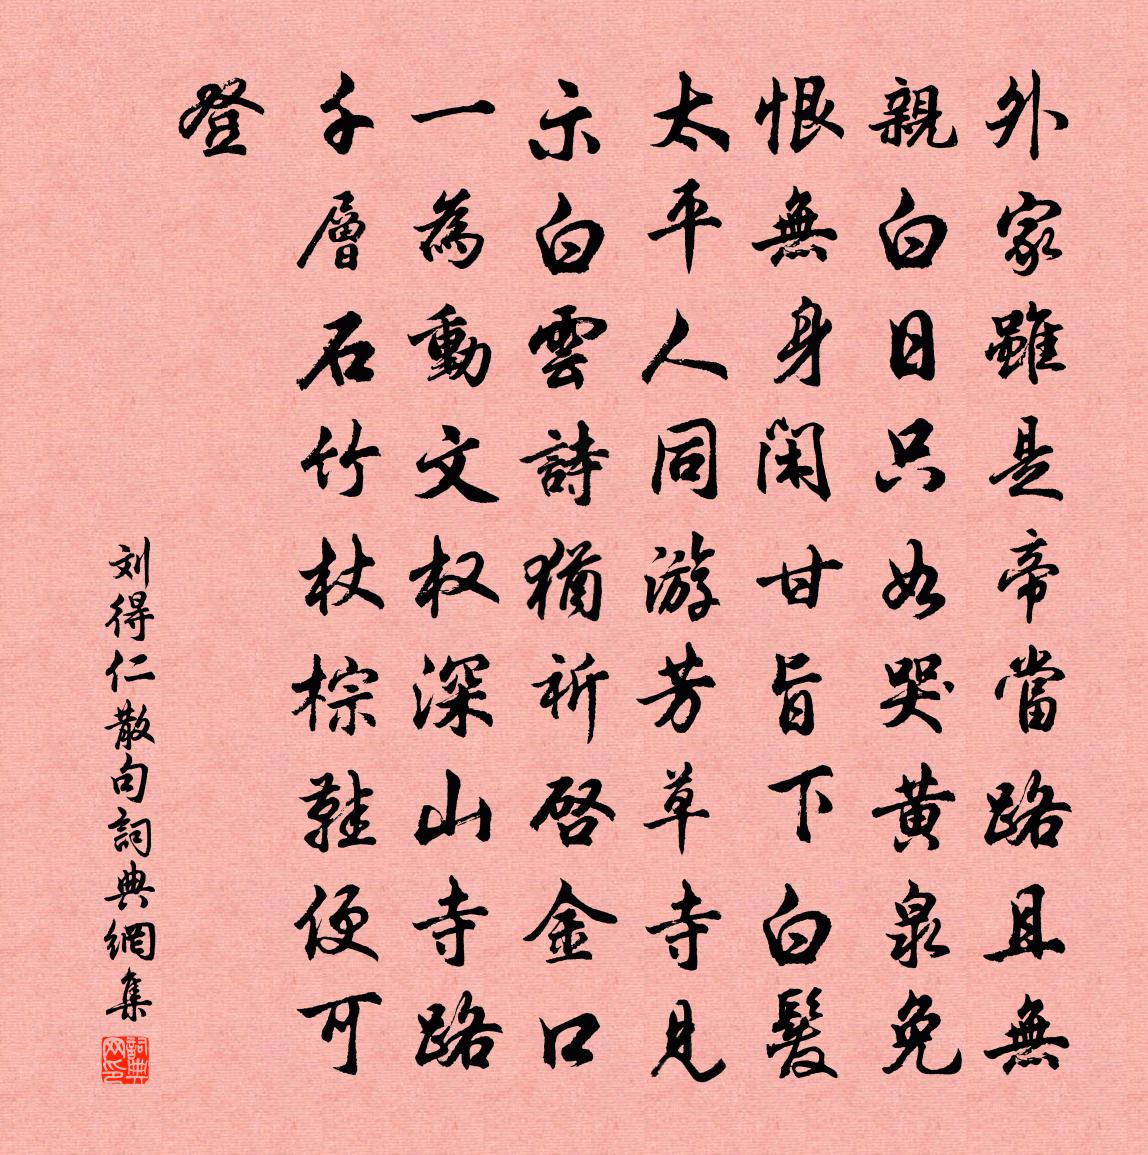 外家雖是帝當路且無
親白日只如哭黃泉免
恨無身閑甘旨下白髮
太平人同游芳草寺見
示白雲詩猶祈啓金口
一為動文权深山寺路
千層石竹杖棕鞋便可
登
刘得仁散句詞典網集
詞典网印